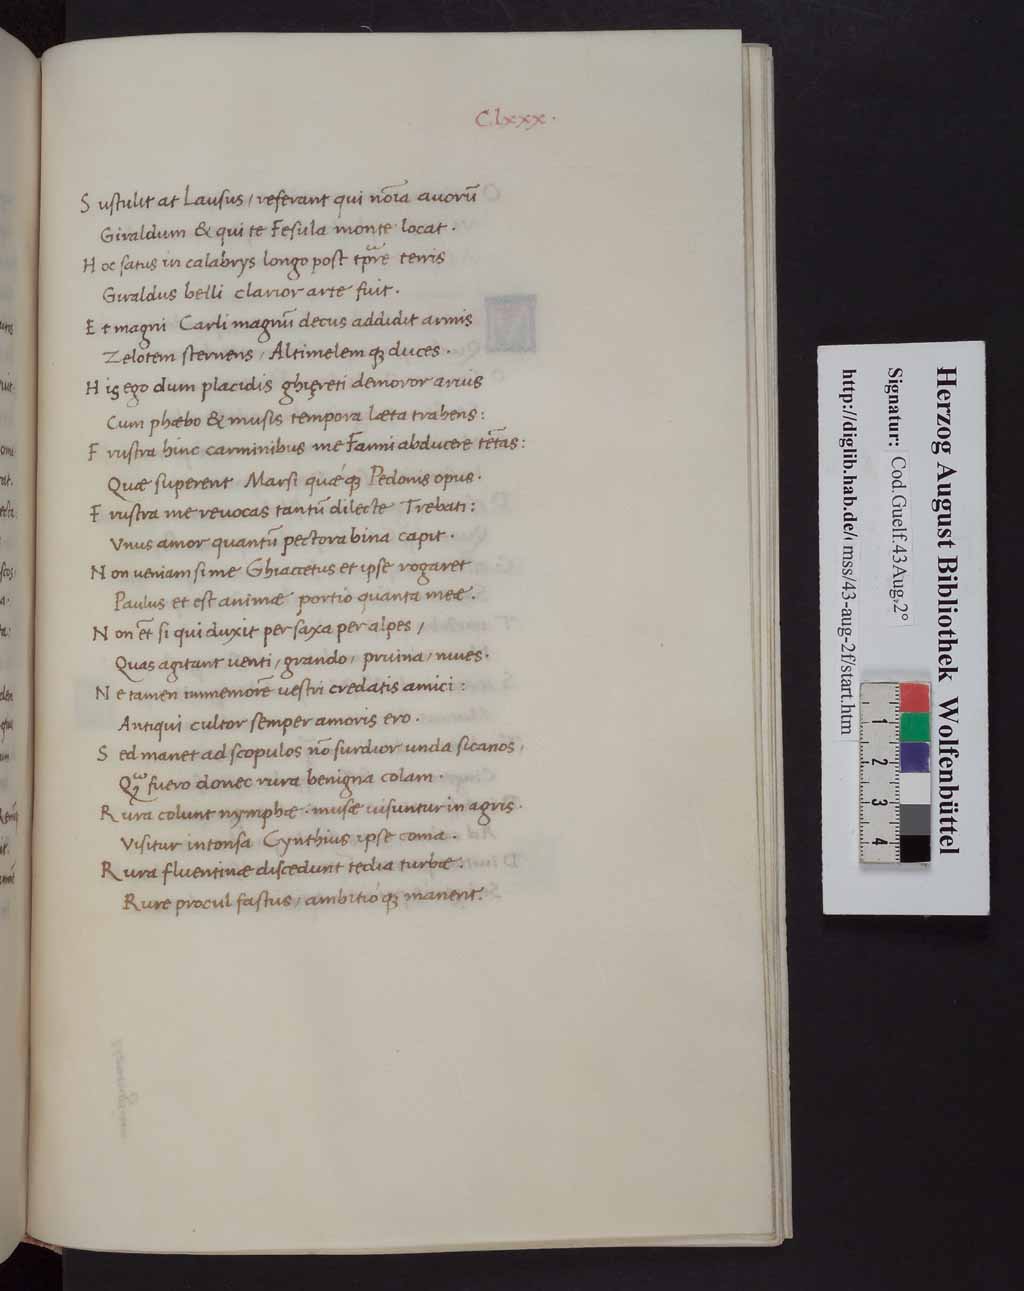 C.lxxx.
Sustulit at Lausus, referant qui nōīa auorū
Giraldum & qui te Fesula monte locat.
Hoc satus in calabrys longo post tp̄re terris
Giraldus belli clarior arte fuit.
Et magni Carli magnū decus addidit armis
Zelotem sternens, Altimelemqꝫ duces.
His ego dum placidis ghięreti demoror aruis
Cum phœbo & musis tempora læta trahens:
Frustra hinc carminibus me Fanni abducere tētas:
Quæ superent Marsi quæqꝫ Pedonis opus.
Frustra me reuocas tantū dilecte Trebati:
Vnus amor quantū pectora bina capit.
Non ueniam si me Ghiaccetus et ipse rogaret
Paulus et est animæ portio quanta meę.
Non et̄ si qui duxit per saxa per alpes,
Quas agitant uenti, grando, pruina, niues.
Ne tamen immemorē uestri credatis amici:
Antiqui cultor semper amoris ero.
Sed manet ad scopulos nō surdior unda sicanos,
fuero donec rura benigna colam.
Rura colunt nymphæ. musæ uisuntur in agris.
Visitur intonsa Cynthius ipse coma.
Rura fluentinæ discedunt tedia turbæ:
Rure procul fastus, ambitioqꝫ manent.
Herzog August Bibliothek Wolfenbüttel
Signatur: Cod.Guelf.43 Aug. 2°
http://diglib.hab.de/ mss/43-aug-2f/start.htm
1 2 3 4